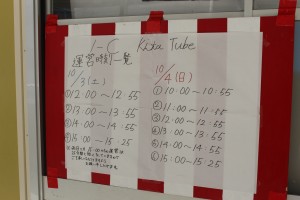 1-C Kids Tube
運営時刻一覧
10/3(土)
①12:00~12:55
②13:00~13:55
③14:00~14:55
④15:00~15:25
10/4(日)
①10:00~10:55
②11:00~11:55
③12:00~12:55
④13:00~13:55
⑤14:00~14:55
⑥15:00~15:25